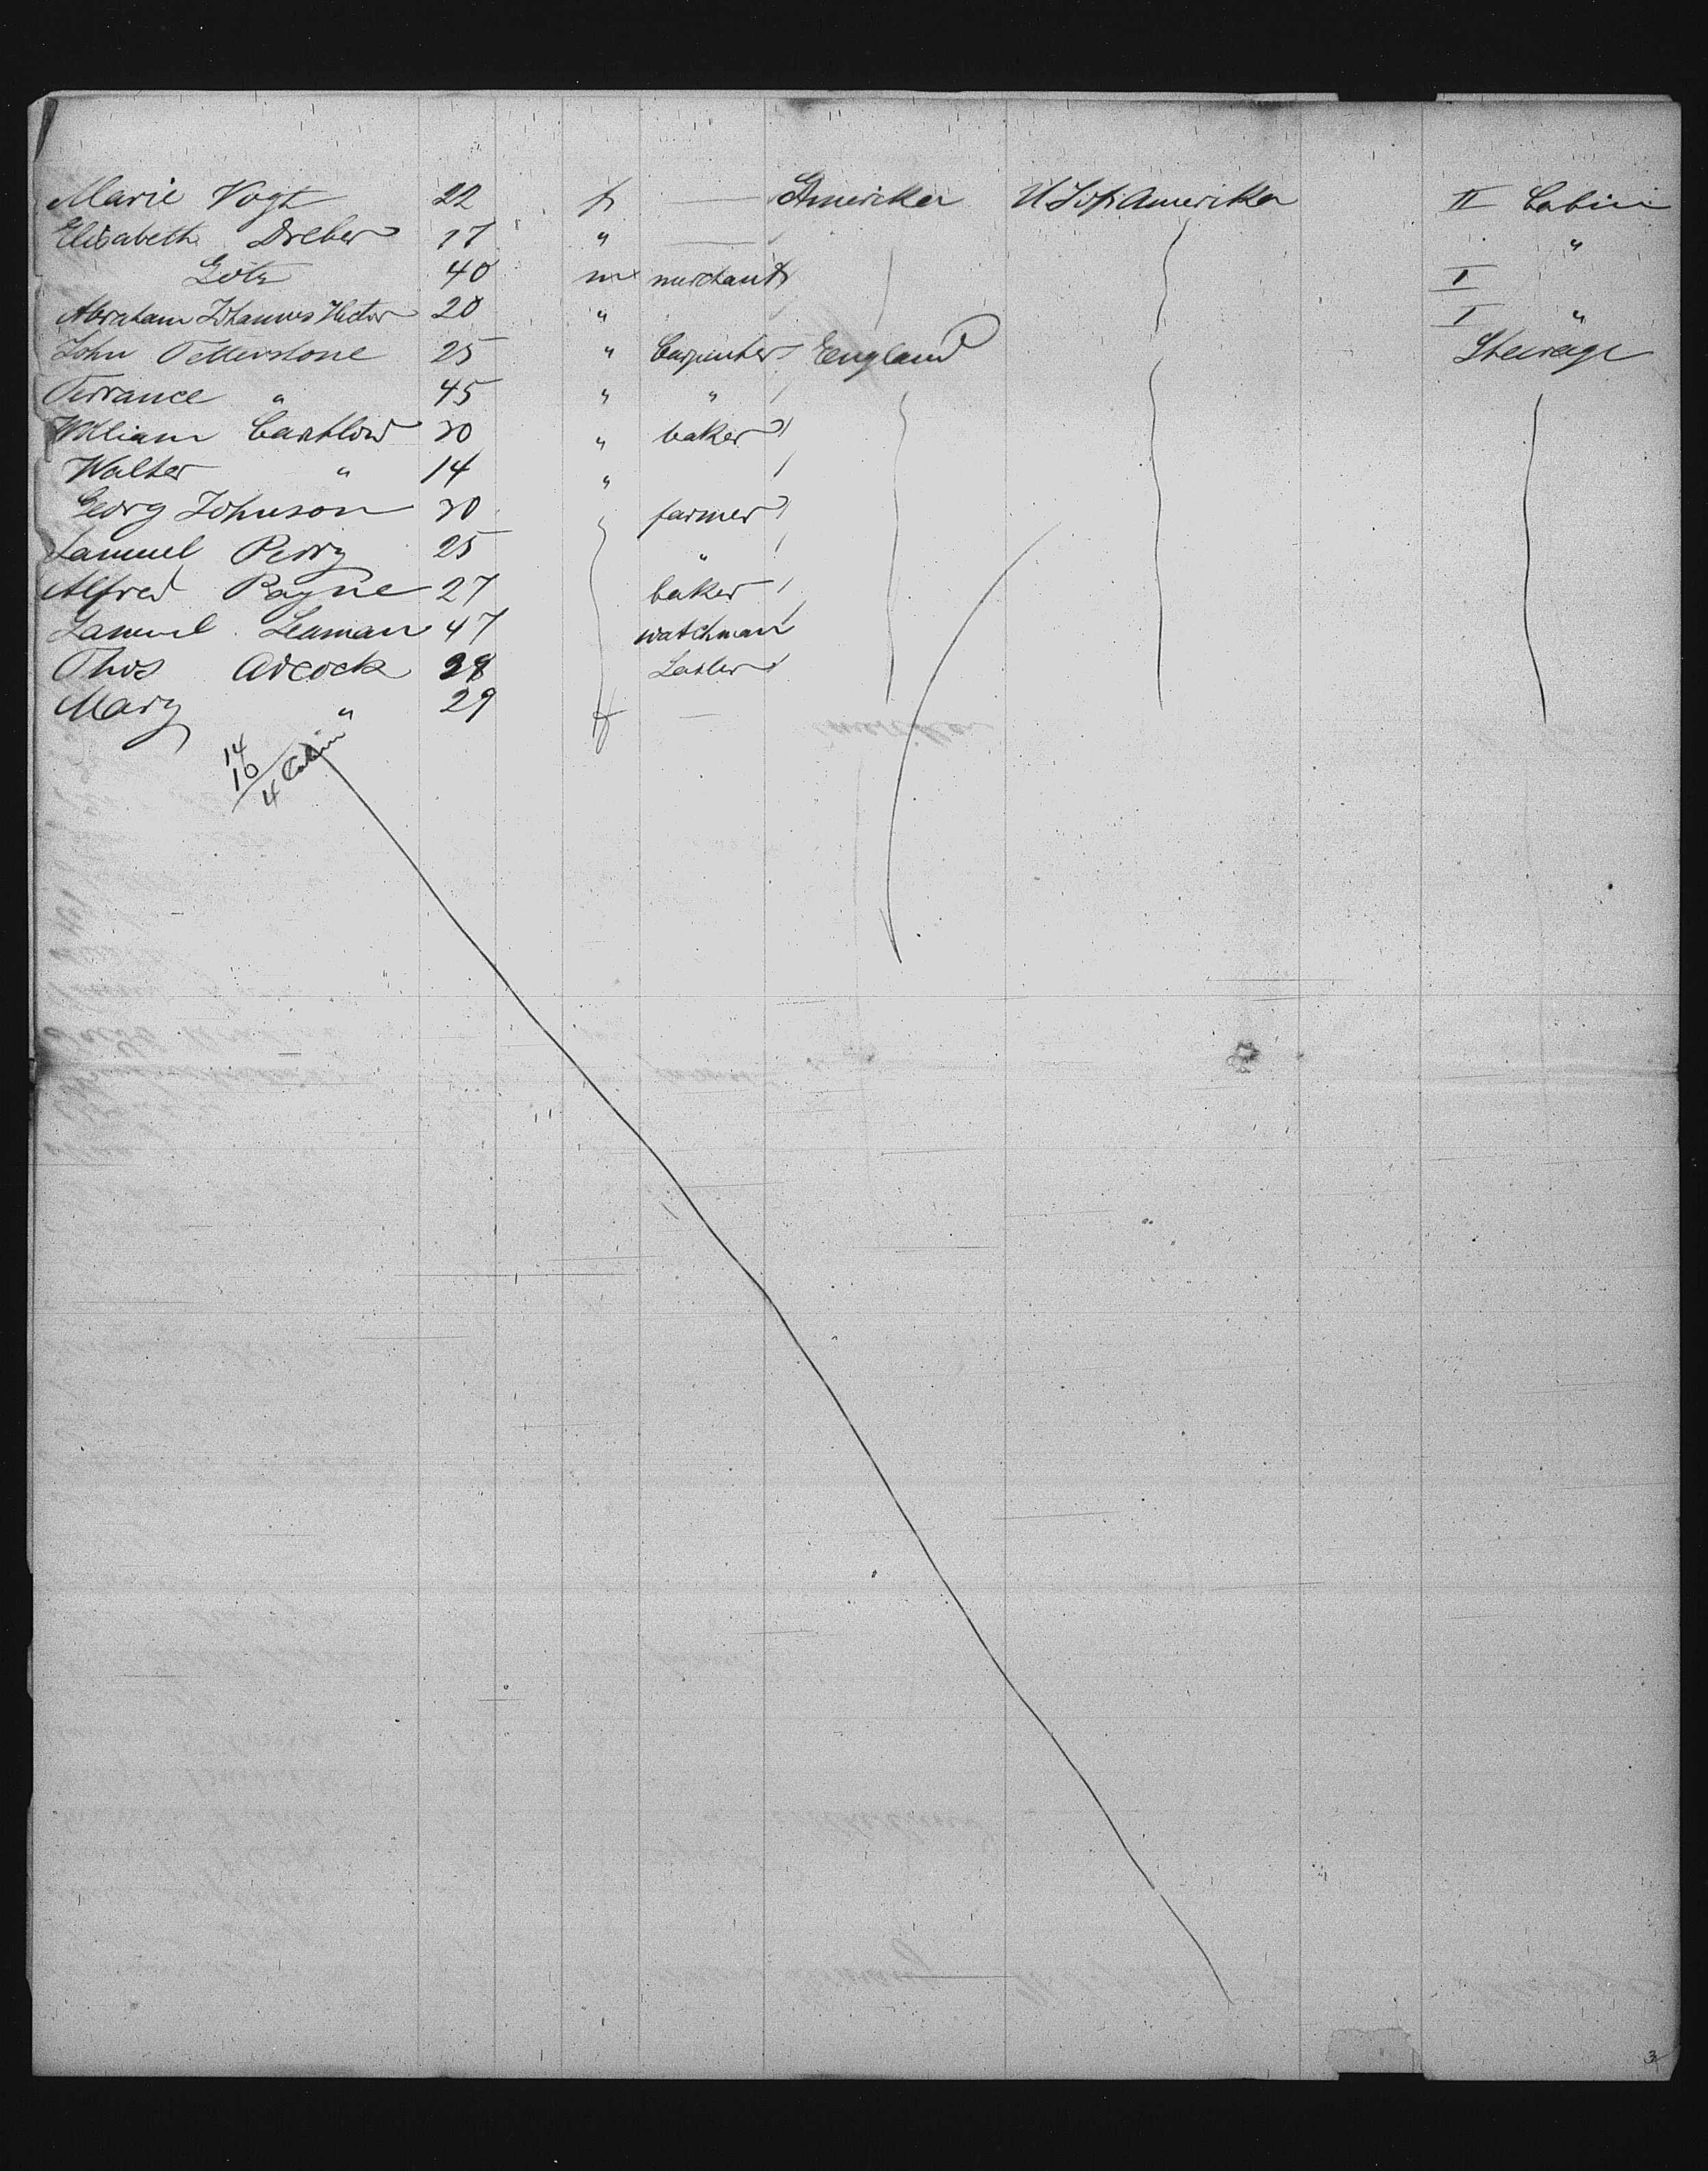 Marie Vogt 22 f — Amerika U S of Amerika II Cabin
Elisabeth Dreher 17 " — "
Götz 40 m merchant I
Abraham Johannes Hector 20 " I "
John Tetterstone 25 " Carpenter England Steerage
Terrance " 45 " "
William Cartlow 30 " baker
Walter " 14 "
Georg Johnson 30 farmer
Samuel Perry 25 "
Alfred Payne 27 baker
Samuel Seaman 47 watchman
Thos Adcock 28
Mary " 29 f —
14
10
4 Cabin
3